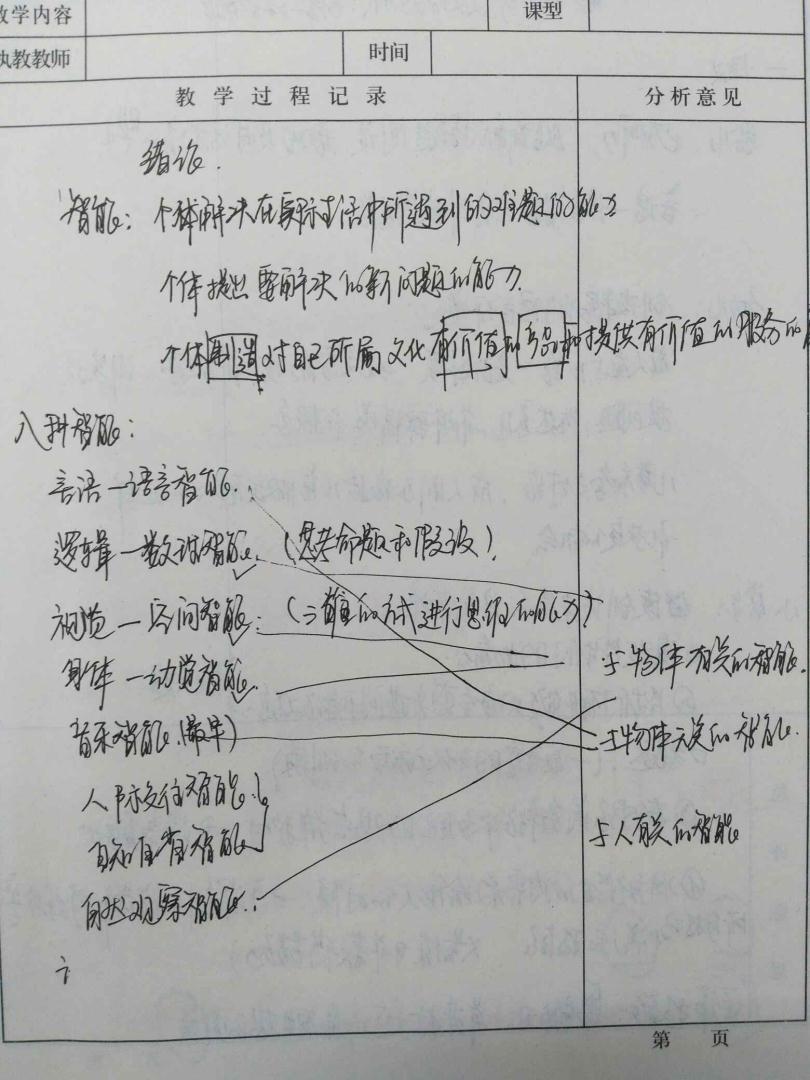 教学内容 课型
执教教师 时间
教学过程记录 分析意见
绪论.
智能: 个体解决在实际生活中所遇到的难题的能力
个体提出要解决的新问题的能力.
个体制造对自己所属文化有价值的产品和提供有价值的服务的
八种智能:
言语—语言智能.
逻辑—数理智能. (思考命题和假设).
视觉—空间智能: (三维的方式进行思维的能力)
身体—动觉智能.
与物体有关的智能.
音乐智能.(最早)
与物体无关的智能.
人际交往智能.
自知自省智能
与人有关的智能
自然观察智能.
第 页